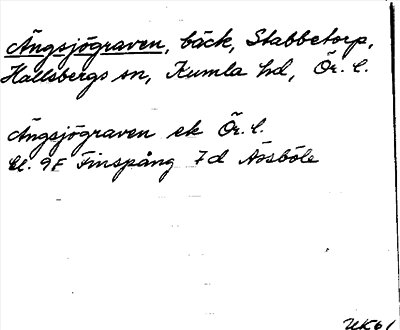 Ängsjögraven, bäck, Stabbetorp,
Hallsbergs sn, Kumla hd, Ör. l.
Ängsjögraven ek Ör. l.
Bl. 9F Finspång 7d Åsböle
UK61